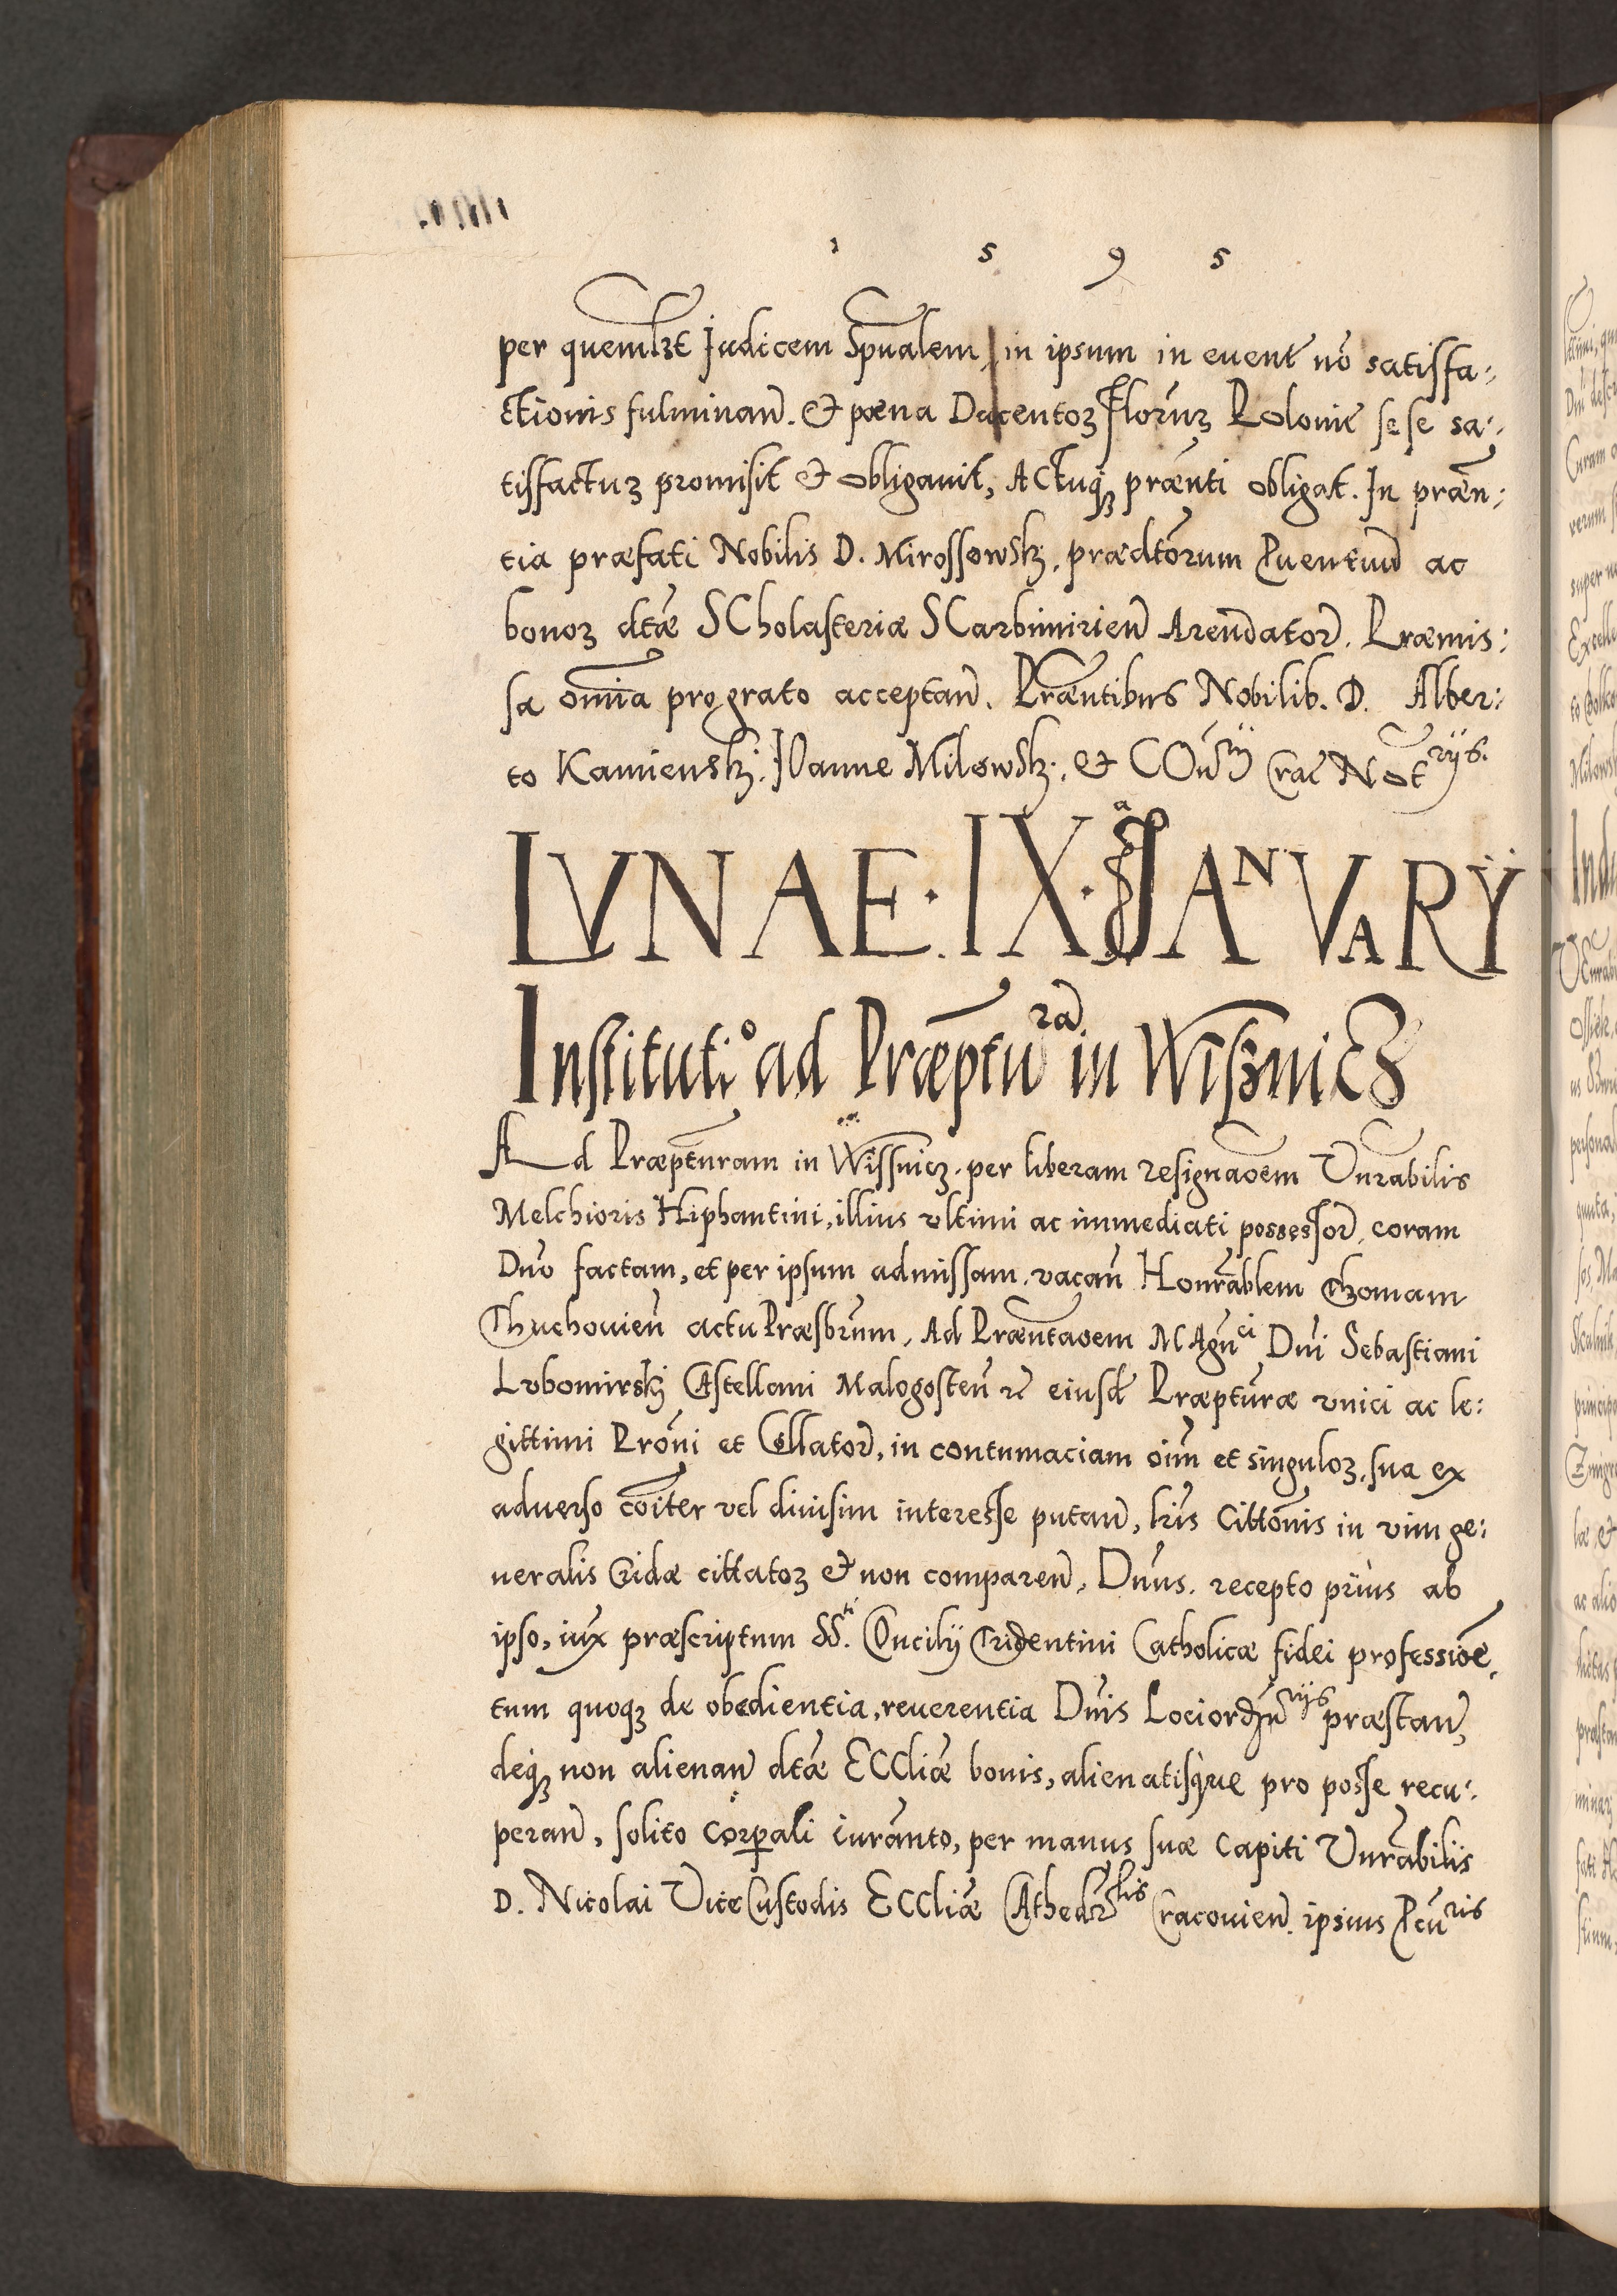 1 5 9 5
per quemlꝫt Judicem Spūalem, in ipsum in euent̃ nō satisfa:
ctionis fulminan̄. et pœna Ducentoꝝ Florūꝝ Poloniē sese sa:
tisfactuꝝ promisit et obligauit, Actuqꝫ præn̄ti obligat. In præn̄:
tia præfati Nobilis D. Mirossowskj, prædtōrum ꝓuentuū ac
bonoꝝ dtæ̃ SCholasteriæ SCarbimirien̄ Arendator̄. Præmis:
sa om̄ia pro grato acceptan̄. Præn̄tibus Nobilib. D. Alber:
to Kamienskj. JOanne Milowskj. et COn̄rij Crac̄ Not̄rijs.
LVNAE. IX. JANVARŸ
Institutiº ad Præptūrā in Wiſznicz
Ad Præptūram in Wissnicz. per liberam resignaōem Vn̄rabilis
Melchioris Hiphantini, illius vltimi ac immediati possessor̄, coram
Dn̄o factam, et per ipsum admissam. vacan̄ Honrāblem Thomam
Thuchouien̄ actu Præsbr̄um, Ad Præn̄taōem MAgn̄ci Dn̄i Sebastiani
Lubomirskj CAstellani Malogosten̄ ꝛc̄ eiusd̄ Præptūræ vnici ac le:
gittimi Prōni et COllator̄, in contumaciam oīm et singuloꝝ, sua ex
aduerso cōiter vel diuisim interesse putan̄, lr̄is Cittōnis in vim ge:
neralis Cridæ cittatoꝝ et non comparen̄, Dn̄us. recepto prius ab
ipso, iux̄ præscriptum SS.ti COncilij Tridentini Catholicæ fidei professiōe,
tum quoqꝫ de obedientia, reuerentia Dn̄is Lociordin̄rijs præstan̄,
deqꝫ non alienan̄ dtæ̃ ECCliæ̃ bonis, alienatisque pro posse recu:
peran̄, solito corꝑali iurān̄to, per manus suæ capiti Vn̄rabilis
D. Nicolai Vice Custodis ECCliæ̃ CAthedr̄lis Cracouien̄. ipsius Pcūris